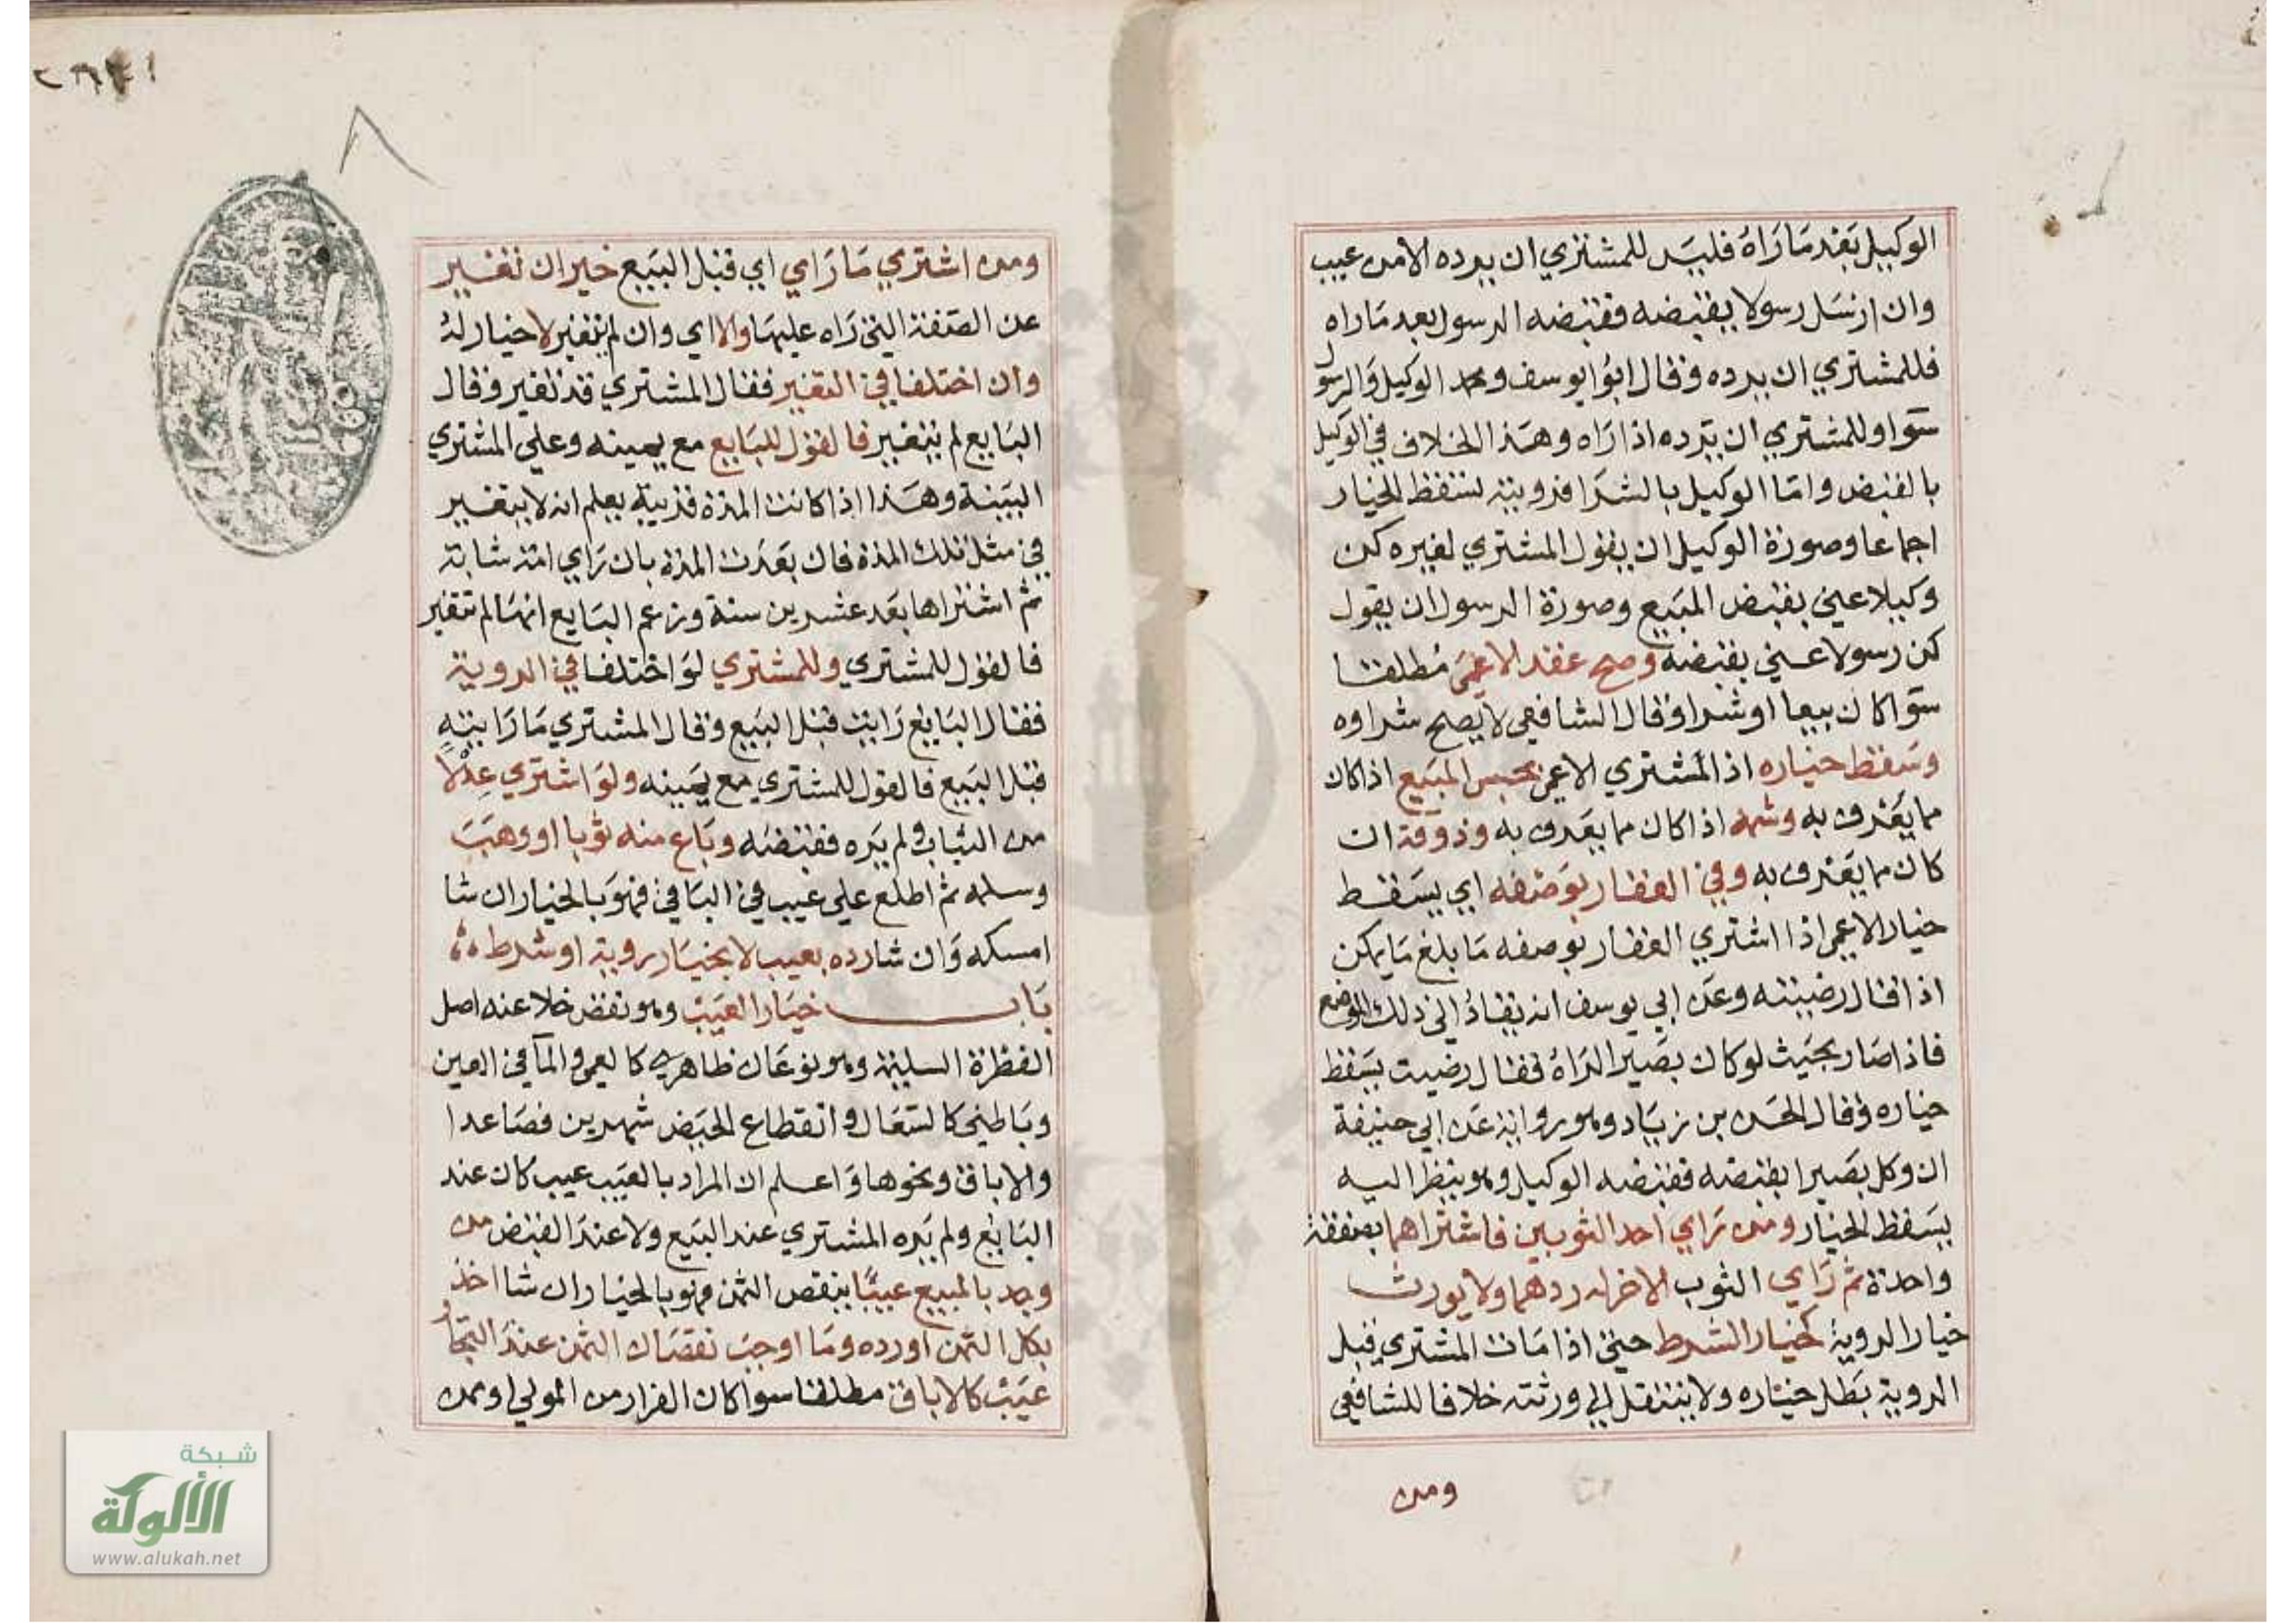 الوكيل بَعْد مَا رَاهُ فليسَ للمشتري ان يرده الامن عيب
وان ارسَل رسولا يقبضه فقبضه الرسول بعد مَا راه
فللمشتري ان يرده وقال ابوُايوسف ومحمد الوكيل وَالرسول
سَوا وللمشتري ان يَرده اذا رَاه وهَذا الخلاف في الوكيل
بالقبض وامَّا الوكيل بالشرَا فرويته تسقط الخيار
اجماعا وصورة الوكيل ان يقول المشتري لغيره كن
وكيلا عني بقبض المبَيع وصورة الرسول ان يقول
كن رسولا عني بقبضه وصح عقد الاعمَى مُطلقا
سَوا كان بيعا او شرا وقال الشافعي لا يصح شراوه
وسَقط خياره اذا المشتري الاعمى بجس المبَيع اذا كان
مما يعَرف به وشمه اذا كان مما يعَرف به وذوقه ان
كان مما يعَرف به وفي العقار بوَصفه اي يسَقط
خيار الاعمى اذا اشتري العقار بوصفه مَا بلغ مَا يمكن
اذا قال رضيته وعَن ابي يوسف انه يقادُ الي ذلك الموضع
فاذا صَار بحيَث لو كان بصَيرا لرَاهُ فقال رضيت يسَقط
خياره وقال الحسَن بن زيَاد وهو رواية عَن ابي حنيفة
ان وكل بصَيرا بقبضه فقبضه الوكيل وهو ينظر اليه
يسَقط الخيار ومن رَاي احد الثوبين فاشتراهما بصفقة
واحدة ثم رَاي الثوب الاخر له ردهما ولا يورث
خيار الروية كخيار الشرط حتي اذا مَات المشتري قبل
الروية بَطل خياره ولا ينتقل الي ورثته خلافا للشافعي
ومن
ومن اشتري مَا رَاي اي قبل البَيع خير ان تغير
عن الصَفة التي رَاه عليهَا والا اي وان لم يتغير لا خيار لهُ
وان اختلفا في التغير فقال المشتري قد تغير وقال
البَايع لم يتغير فالقول للبَايع مع يمينه وعلي المشتري
البيَنة وهَذا اذا كانت المدة قريبة يعلم انه لا يتغير
في مثل تلك المدة فان بعَدت المدة بان رَاي امة شابة
ثم اشتراها بعَد عشرين سنة وزعم البَايع انهَا لم تتغير
فالقول للمشتري وللمشتري لوَ اختلفا في الروية
فقال البَايع رَايت قبل البَيع وقال المشتري مَا رَايته
قبل البَيع فالقول للمشتري مع يمَينه ولوَ اشتري عِدْلًا
من الثياب ولم يَره فقبضَه وبَاع منه ثوبا او وهَبَ
وسلمه ثم اطلع علي عيب في البَاقي فهوَ بالخيار ان شا
امسكه وَان شا رده بعيب لا بخيَار روية او شرط
بَاب خيَار العَيبْ وهو نقض خلا عنه اصل
الفطرة السليمة وهو نوعَان ظاهري كالعمي والمآ في العين
وبَاطني كالسعَال وانقطاع الحيَض شهرين فصَاعدا
والاباق ونحوها وَاعلم ان المراد بالعيَب عيب كان عند
البَايع ولم يَره المشتري عند البَيع ولا عندَ القبض من
وجد بالمبيع عيبًا ينقص الثمن فهو بالخيار ان شا اخذ
بكل الثمن اورده ومَا اوجبَ نقصَان الثمن عندَ التجار
عيَبْ كالاباق مطلقا سوا كان الفرار من المولي او ممن
شبكة
الألوكة
www.alukah.net